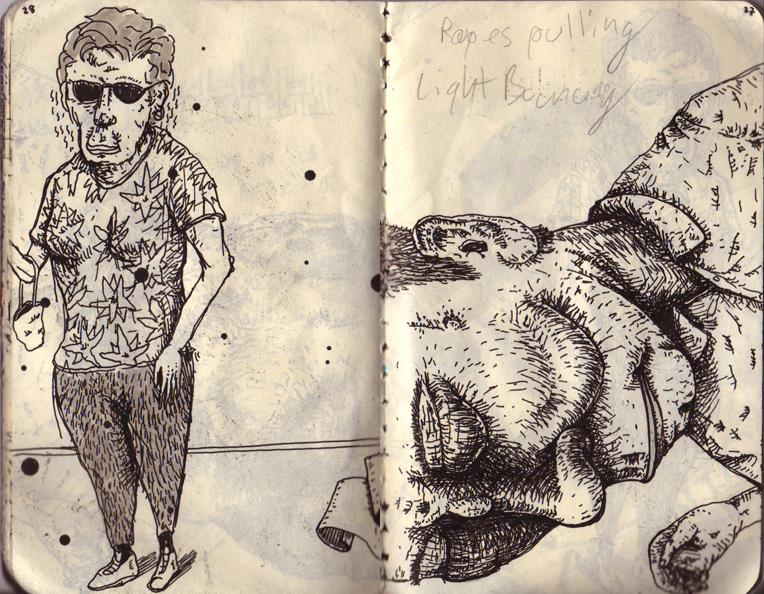 28
27
Ropes pulling
Light Bouncing